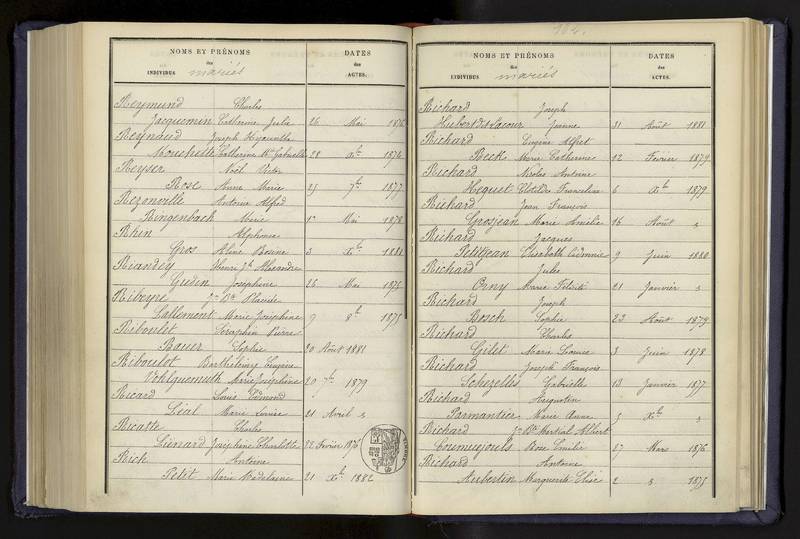 NOMS ET PRÉNOMS DATES
des des
INDIVIDUS mariés ACTES.
Reymund Charles
Jacquemin Catherine Julie 26 Mai 1876
Reynaud Joseph Hyacinthe
Mouchette Catherine Mie Gabrielle 28 Xbre 1876
Reyser Noël Victor
Rose Anne Marie 29 7bre 1877
Rezonville Antoine Alfred
Bingenbach Marie Mai 1878
Rhin Alphonse
Gros Aline Rosine 3 Xbre 1881
Riandey Henri Jh Alexandre
Gudin Joséphine 26 Mai 1875
Ribeyre Jn Bte Placide
Lallement Marie Joséphine 9 8bre 1875
Riboulet Séraphin Pierre
Bauer Sophie 20 Août 1881
Riboulot Barthélémy Eugène
Vehlguemuth Marie Joséphine 20 7bre 1879
Ricard Louis Edmond
Léal Marie Louise 21 Avril
Ricatte Charles
Liénard Joséphine Charlotte 22 Février 1876
Rich Antoine
Petit Marie Madelaine 21 Xbre 1882
184.
NOMS ET PRÉNOMS DATES
des des
INDIVIDUS mariés ACTES.
Richard Joseph
Hubert dit Lacour Jeanne 31 Août 1881
Richard Eugène Alfret
Beck Marie Catherine 12 Février 1879
Richard Nicolas Antoine
Hequet Clotilde Franceline 6 Xbre 1879
Richard Jean François
Grosjean Marie Amélie 16 Août "
Richard Jacques
Petitjean Elisabeth Sidonnie 9 Juin 1880
Richard Jules
Orny Marie Félicité 21 Janvier "
Richard Joseph
Bosch Sophie 23 Août 1879
Richard Charles
Gilet Marie Louise 3 Juin 1878
Richard Joseph François
Schezellis Gabrielle 13 Janvier 1877
Richard Augustin
Parmantier Marie Anne 5 Xbre "
Richard Jn Bte Martial Albert
Coumuejouls Rose Emilie 27 Mars 1876
Richard Antoine
Aubertin Marguerite Elise 2 " 1875